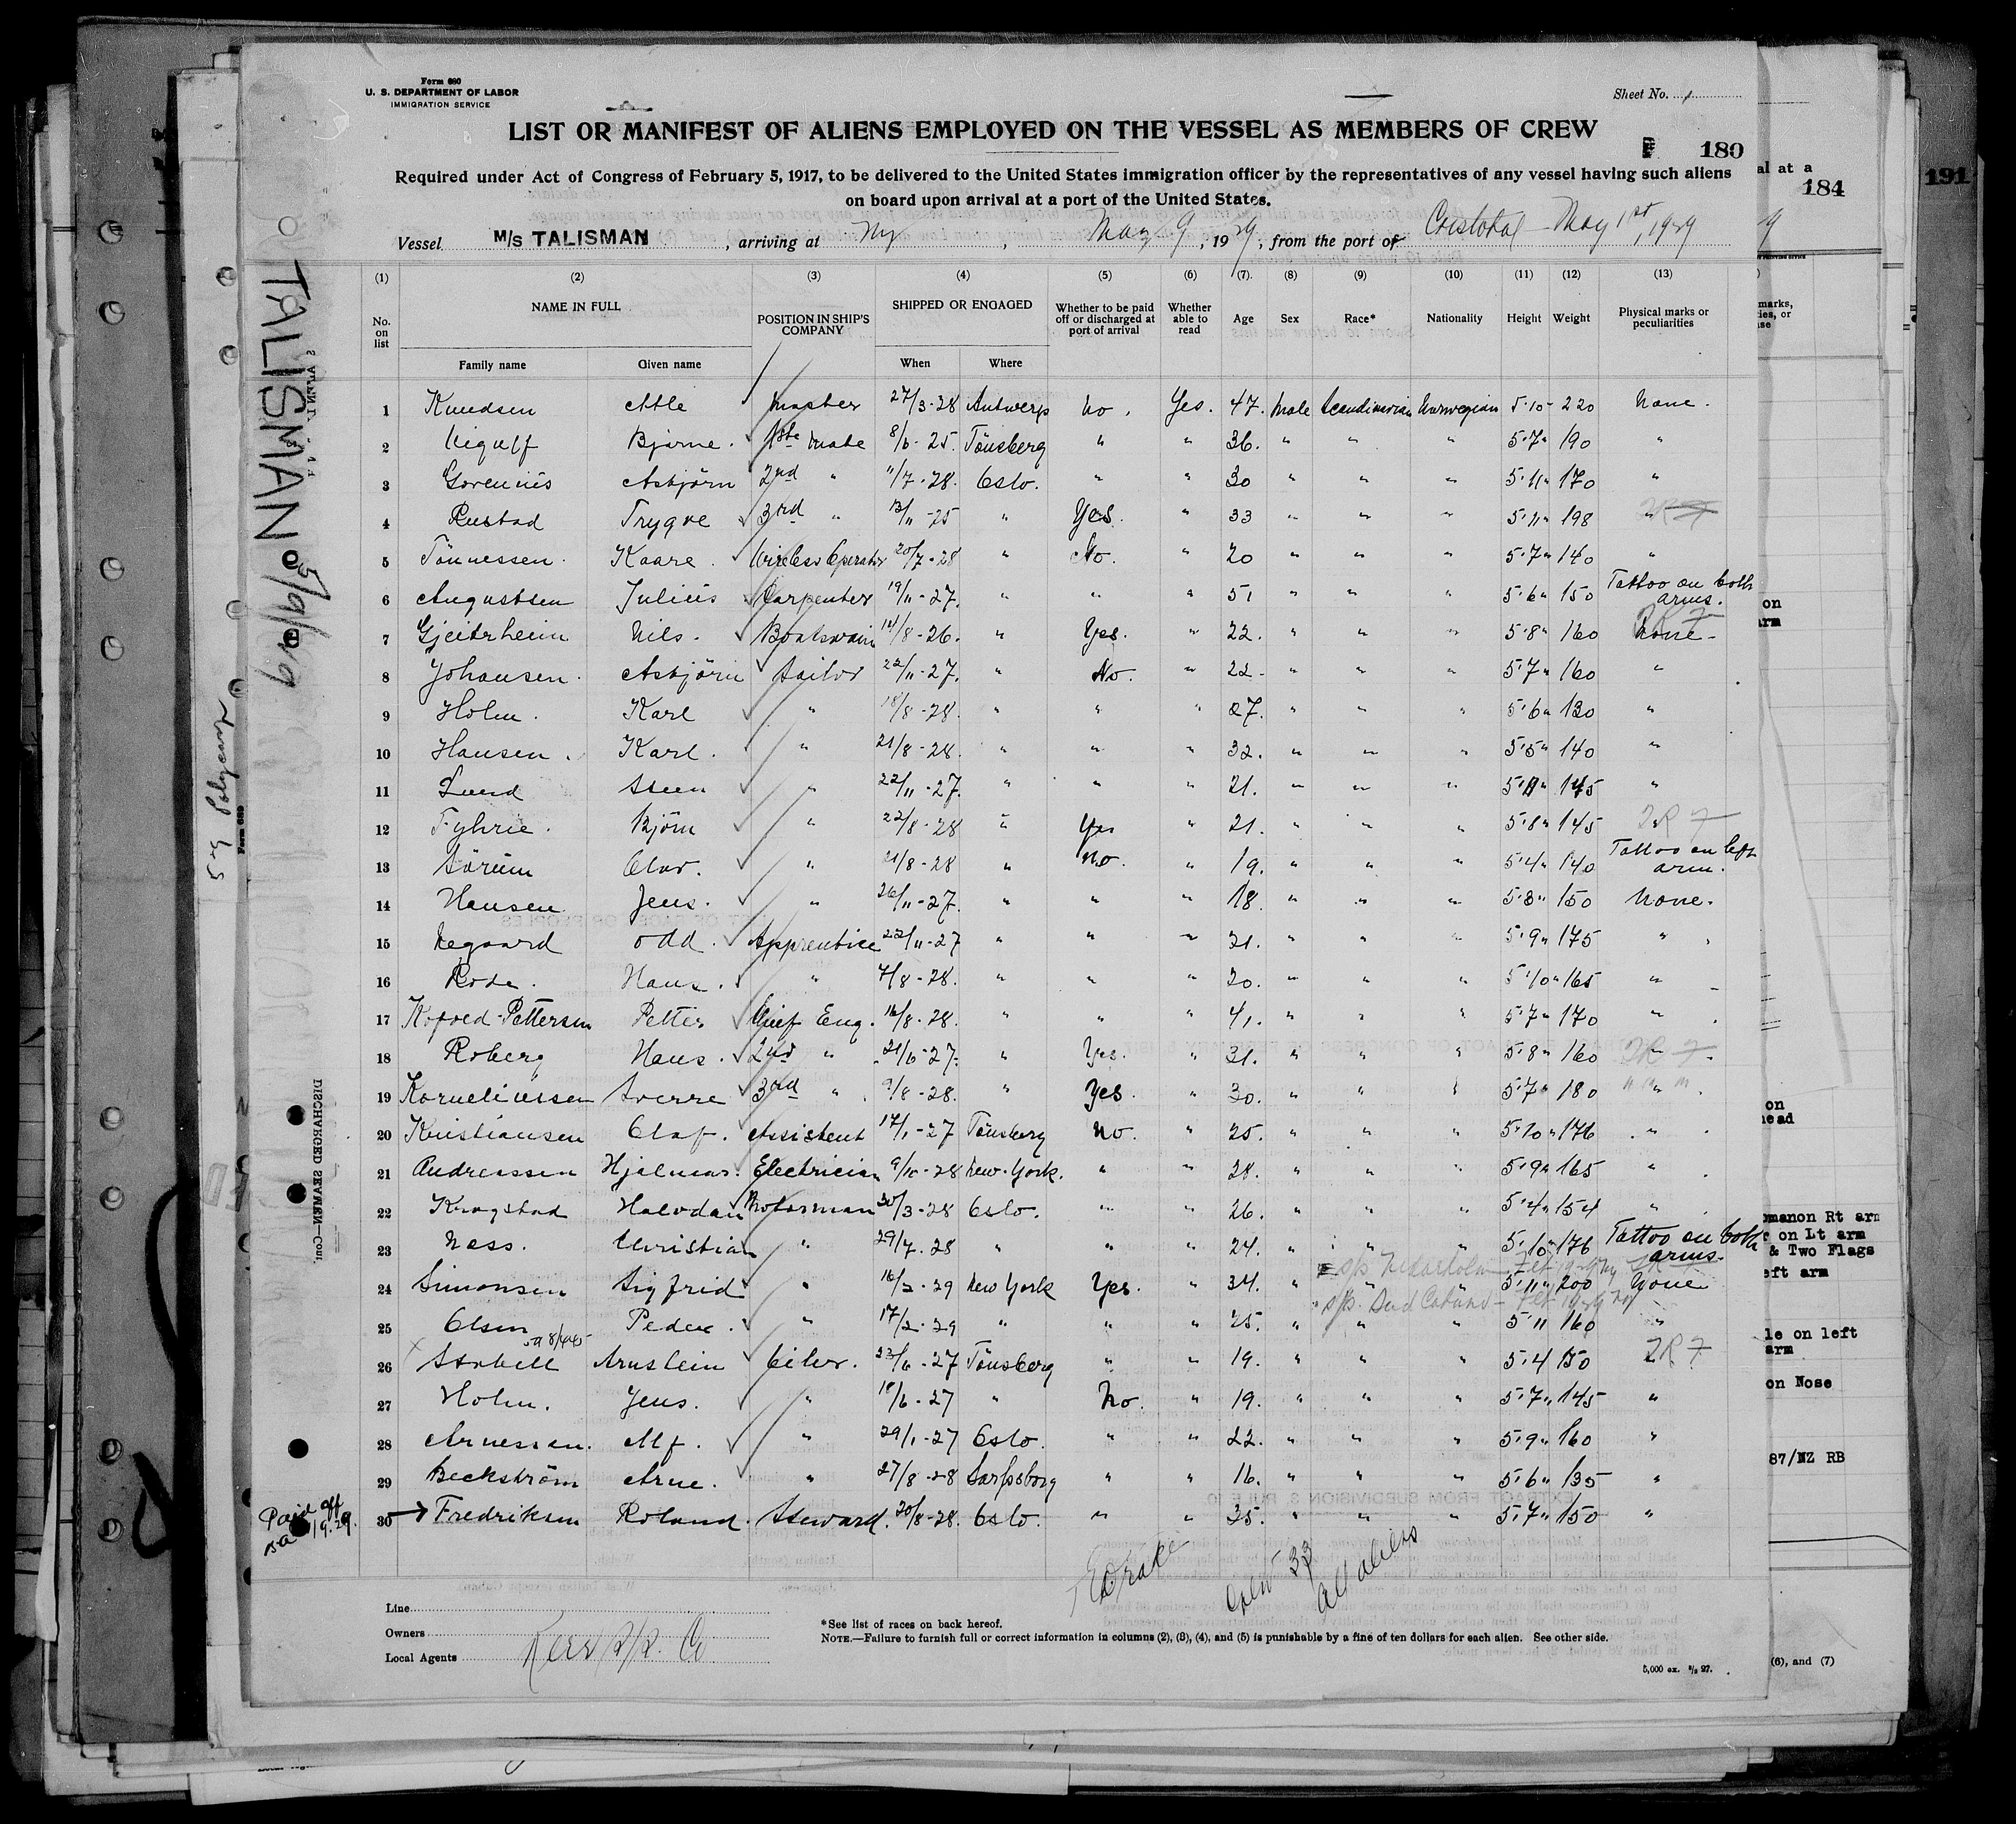 Form 680
U. S. DEPARTMENT OF LABOR
IMMIGRATION SERVICE
Sheet No. 1
LIST OR MANIFEST OF ALIENS EMPLOYED ON THE VESSEL AS MEMBERS OF CREW
180
Required under Act of Congress of February 5, 1917, to be delivered to the United States immigration officer by the representatives of any vessel having such aliens
on board upon arrival at a port of the United States.
Vessel M/S TALISMAN, arriving at Ny, May 9, 1929, from the port of Cristobal May 1st, 1929
(1) (2) (3) (4) (5) (6) (7) (8) (9) (10) (11) (12) (13)
No. on list NAME IN FULL POSITION IN SHIP'S COMPANY SHIPPED OR ENGAGED Whether to be paid off or discharged at port of arrival Whether able to read Age Sex Race* Nationality Height Weight Physical marks or peculiarities
Family name Given name When Where
1 Knudsen Atle Master 27/3-28 Antwerp No. Yes. 47. Male Scandinavian Norwegian 5'10" 220 None.
2 Bjarne. 1ste Mate 8/6-25. Tönsberg " " 36. " " " 5'7" 190 "
3 Asbjörn 2nd " 11/7-28. Oslo. " " 30 " " " 5'11" 170 "
4 Rustad Trygve 3rd " 13/11-25 " Yes. " 33 " " " 5'11" 198
5 Tönnessen. Kaare. Wireless Operator 20/7-28 " No. " 20 " " " 5'7" 140 "
6 Augustsen Julius Carpenter 19/11-27. " " " 51 " " " 5'6" 150 Tattoo on both arms.
7 Gjeitrheim Nils. Boatswain 14/8-26. " Yes. " 22. " " " 5'8" 160 None
8 Johansen. Asbjörn Sailor 22/11-27. " No. " 22 " " " 5'7" 160 "
9 Holm. Karl " 18/8-28. " " " 27. " " " 5'6" 130 "
10 Hansen. Karl. " 21/8-28. " " " 32. " " " 5'5" 140 "
11 Lund Steen " 22/11-27. " " " 21. " " " 145 "
12 Fyhrie. Björn " 22/8-28 " Yes " 21. " " " 5'8" 145 2R 7
13 Sörum Olav. " 21/8-28 " No. " 19. " " " 5'4" 140 Tattoo on left arm.
14 Hansen Jens. " 26/11-27. " " " 18. " " " 5'8" 150 None.
15 Negaard Odd. Apprentice 22/11-27 " " " 21. " " " 5'9" 175 "
16 Rode. Hans. " 7/8-28. " " " 20. " " " 5'10" 165 "
17 Kofoed-Pettersen Petter Chief Eng. 16/8-28. " " " 41. " " " 5'7" 170 "
18 Roberg Hans. 2nd " 21/6-27. " Yes. " 31. " " " 5'8" 160 2R 7
19 Korneliussen Sverre 3rd " 9/8-28. " Yes. " 30. " " " 5'7" 180 "
20 Kristiansen Olaf. Assistent 17/1-27 Tönsberg No. " 25. " " " 5'10" 176 "
21 Andreassen Hjalmar. Electrician 9/10-28 New-York. " " 28. " " " 5'9" 165 "
22 Krogstad Halvdan Motorman 30/3-28 Oslo. " " 26. " " " 5'4" 154 "
23 Ness. Christian " 29/7.28 " " " 24. " " " 5'10" 176 Tattoo on both arms.
24 Simonsen Sigfrid " 16/2-29 New York Yes. " 34. " " " 5'11" 200 None
25 Olsen Peder. " 17/2-29 " " " 25. " " " 5'11 160 "
26 Arnstein Oiler. 23/6-27 Tönsberg " " 19. " " " 5'4 150 2R 7
27 Holm. Jens. " 18/6-27 " No. " 19. " " " 5'7" 145 "
28 Arnessen. Alf. " 29/1-27 Oslo. " " 22. " " " 5'9" 160 "
29 Beckström Arne. " 27/8-28 Sarpsborg " " 16. " " " 5'6" 135 "
30 Fredriksen Roland. Steward. 20/8-28. Oslo. " " 35. " " " 5'7" 150 "
Paid off
Crew 33
All aliens
Line
Owners
Local Agents Kerr S/S. Co
*See list of races on back hereof.
NOTE.—Failure to furnish full or correct information in columns (2), (3), (4), and (5) is punishable by a fine of ten dollars for each alien. See other side.
TALISMAN 5/9/29
DISCHARGED SEAMEN—Cont.
Form 680
al at a
184
191
marks,
on
arm
on
head
on Rt arm
on Lt arm
& Two Flags
left arm
le on left
arm
on Nose
87/NZ RB
(6), and (7)